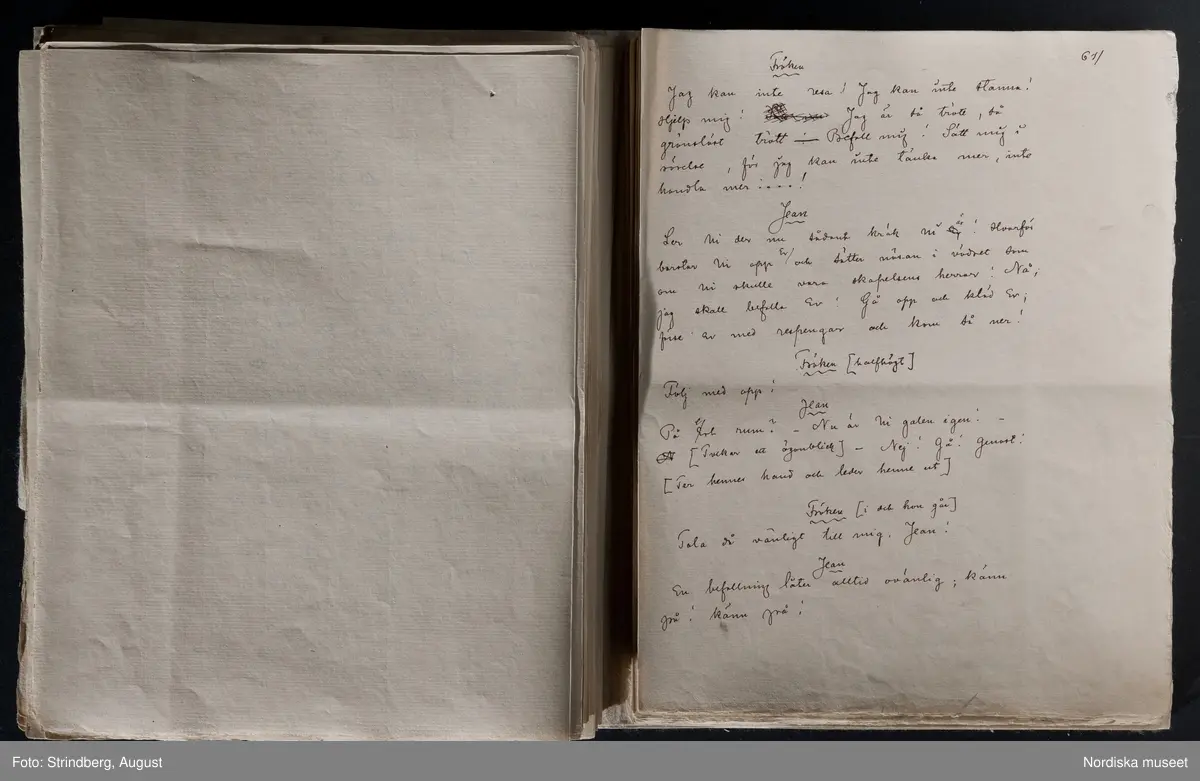 61/
Fröken
Jag kan inte resa! Jag kan inte stanna!
Hjelp mig! Jag är så trött, så
gränslöst trött — Befall mig! Sätt mig i
rörelse, för jag kan inte tänka mer, inte
handla mer ....!
Jean
Ser Ni der nu sådant kräk ni är! Hvarför
borstar Ni opp Er/ och sätter näsan i vädret som
om Ni skulle vara skapelsens herrar! Nå,
jag skall befalla Er! Gå opp och kläd Er;
förse Er med respengar och kom så ner!
Fröken [halfhögt]
Följ med opp!
Jean
På Ert rum? – Nu är Ni galen igen! –
[Tvekar ett ögonblick] – Nej! Gå! Genast!
[Tar hennes hand och leder henne ut]
Fröken [i och hon går]
Tala då vänligt till mig, Jean!
Jean
En befallning låter alltid ovänlig; känn
på! känn på!
Foto: Strindberg, August
Nordiska museet